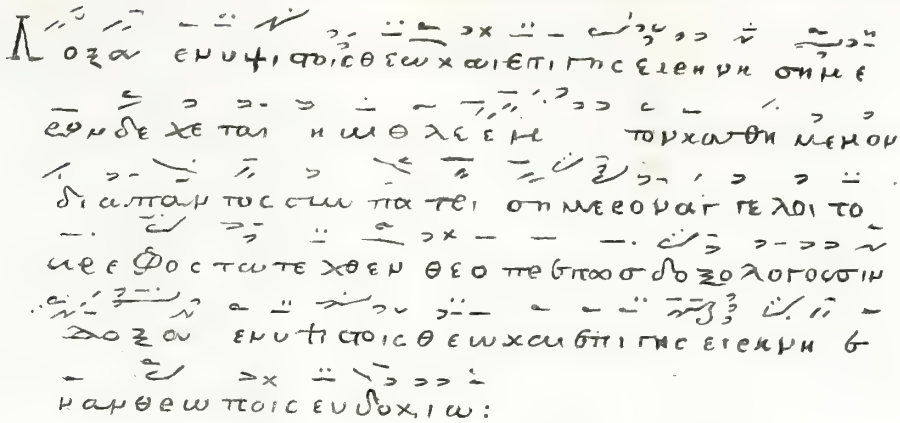 Δοξα εν υψιστοις θεω και επι γης ειρηνη σημε
ρον δεχεται η βηθλεεμ τον καθημενον
δια παντος συν πατρι σημερον αγγελοι το
βρεφος τω τεχθεν θεοπρεπως δοξολογουσιν
Δοξα εν υψιστοις θεω και επι γης ειρηνη ε
ν ανθρωποις ευδοκια: